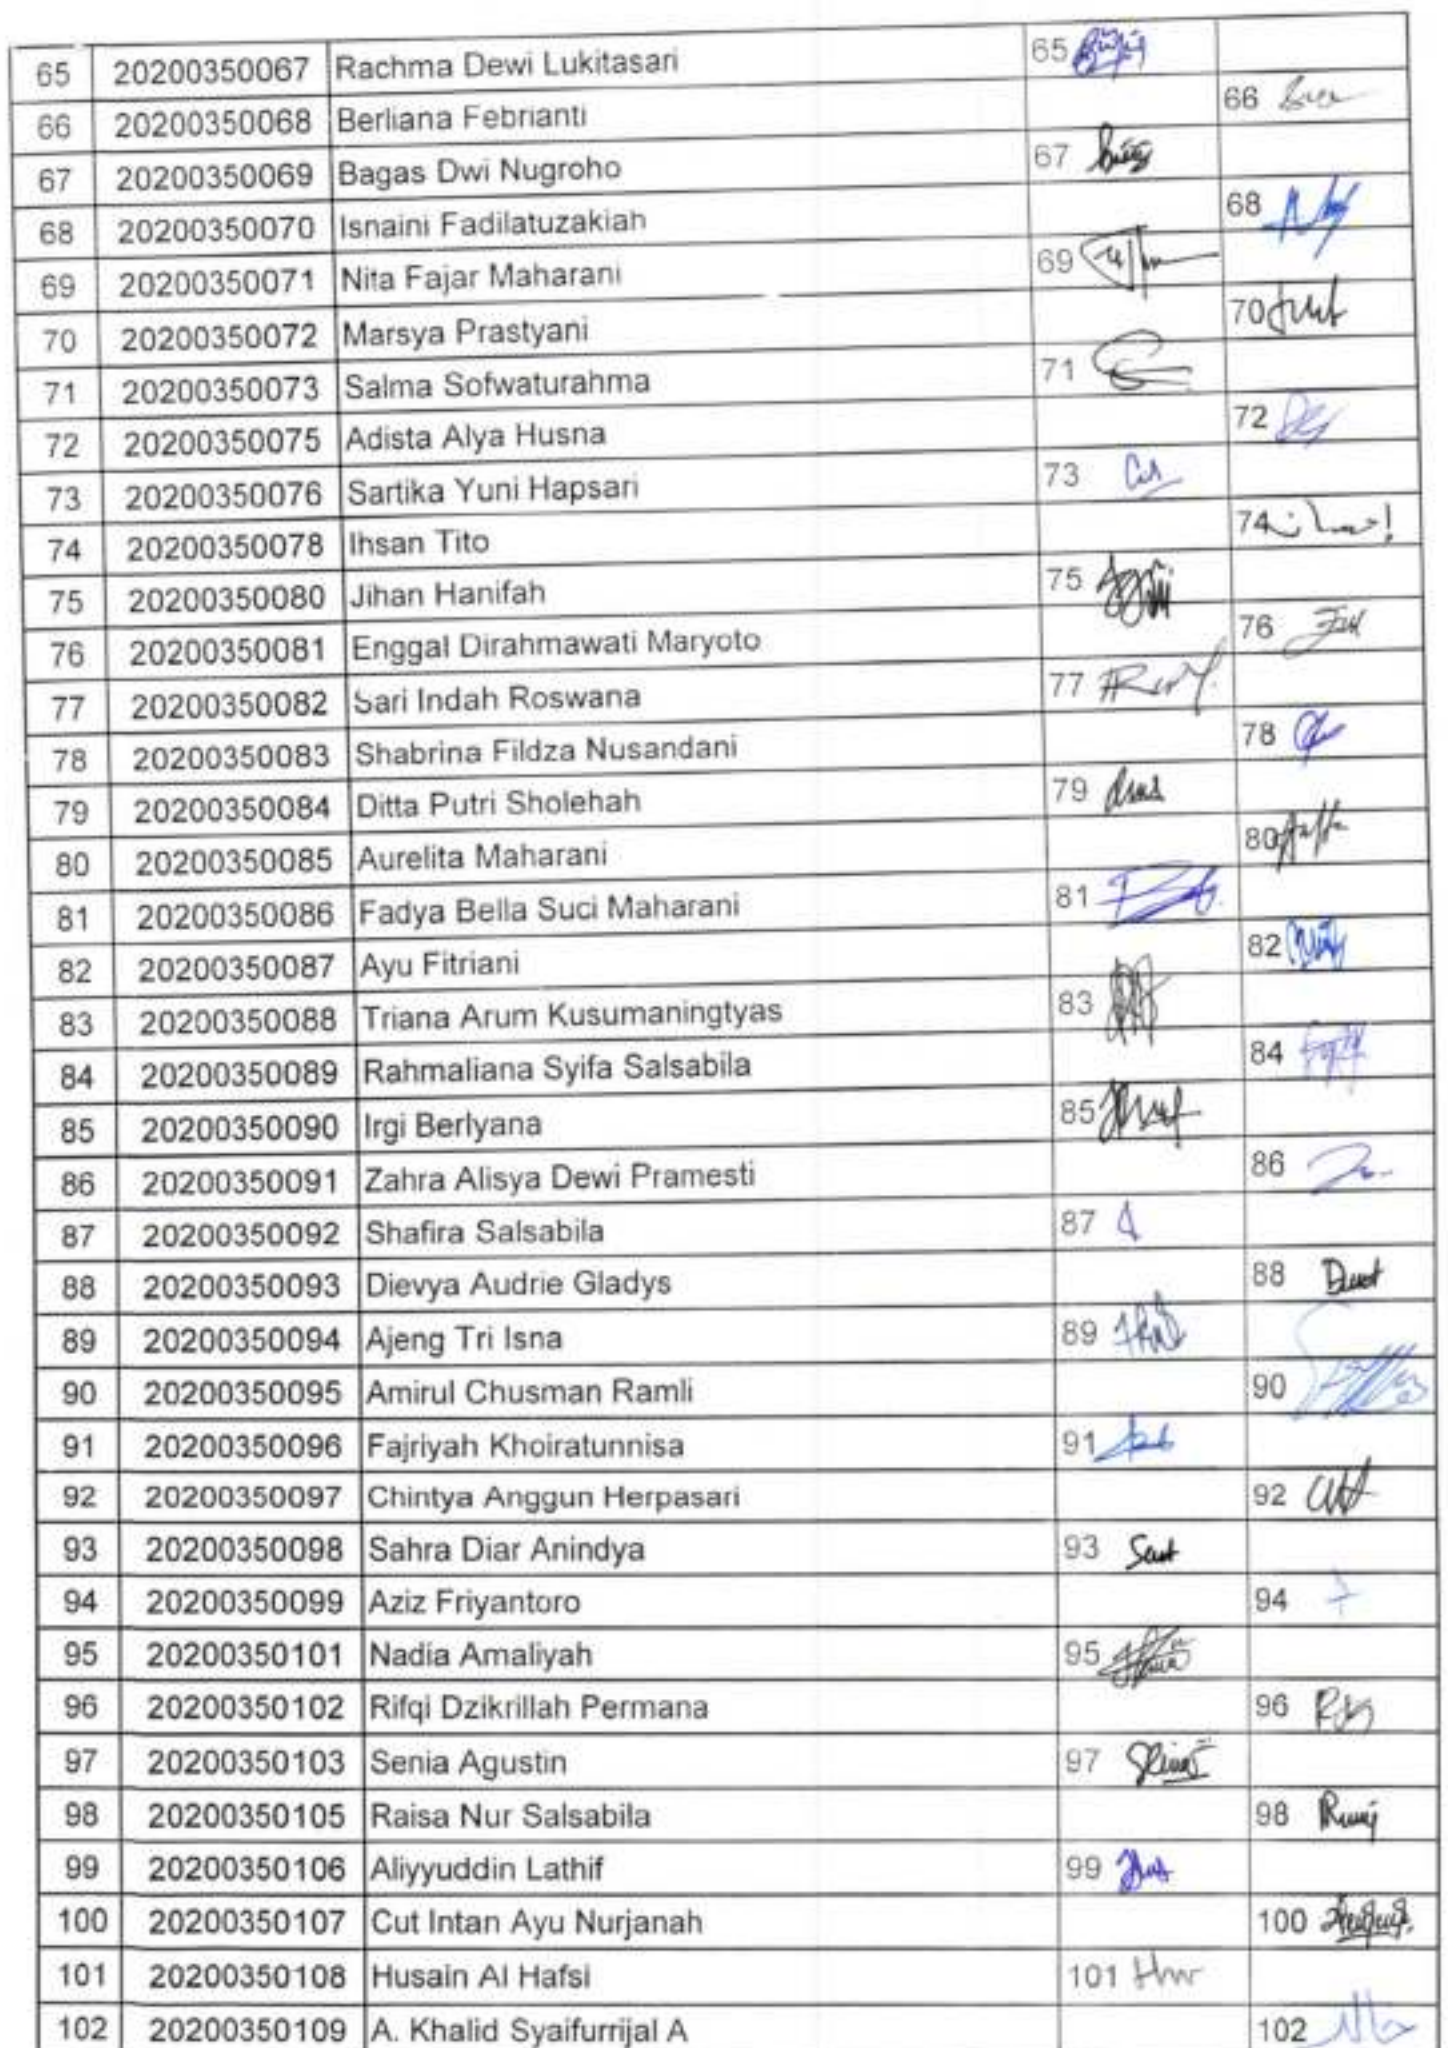 65 20200350067 Rachma Dewi Lukitasari 65
66 20200350068 Berliana Febrianti 66
67 20200350069 Bagas Dwi Nugroho 67
68 20200350070 Isnaini Fadilatuzakiah 68
69 20200350071 Nita Fajar Maharani 69
70 20200350072 Marsya Prastyani 70
71 20200350073 Salma Sofwaturahma 71
72 20200350075 Adista Alya Husna 72
73 20200350076 Sartika Yuni Hapsari 73
74 20200350078 Ihsan Tito 74
75 20200350080 Jihan Hanifah 75
76 20200350081 Enggal Dirahmawati Maryoto 76
77 20200350082 Sari Indah Roswana 77
78 20200350083 Shabrina Fildza Nusandani 78
79 20200350084 Ditta Putri Sholehah 79
80 20200350085 Aurelita Maharani 80
81 20200350086 Fadya Bella Suci Maharani 81
82 20200350087 Ayu Fitriani 82
83 20200350088 Triana Arum Kusumaningtyas 83
84 20200350089 Rahmaliana Syifa Salsabila 84
85 20200350090 Irgi Berlyana 85
86 20200350091 Zahra Alisya Dewi Pramesti 86
87 20200350092 Shafira Salsabila 87
88 20200350093 Dievya Audrie Gladys 88
89 20200350094 Ajeng Tri Isna 89
90 20200350095 Amirul Chusman Ramli 90
91 20200350096 Fajriyah Khoiratunnisa 91
92 20200350097 Chintya Anggun Herpasari 92
93 20200350098 Sahra Diar Anindya 93
94 20200350099 Aziz Friyantoro 94
95 20200350101 Nadia Amaliyah 95
96 20200350102 Rifqi Dzikrillah Permana 96
97 20200350103 Senia Agustin 97
98 20200350105 Raisa Nur Salsabila 98
99 20200350106 Aliyyuddin Lathif 99
100 20200350107 Cut Intan Ayu Nurjanah 100
101 20200350108 Husain Al Hafsi 101
102 20200350109 A. Khalid Syaifurrijal A 102